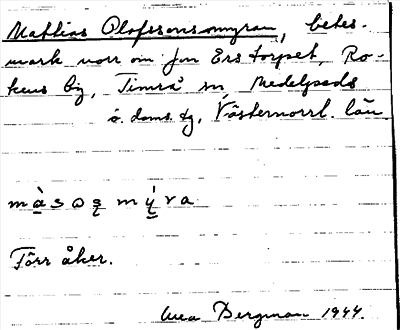 Mattias Olofssonsmyran, betes-
mark norr om Jon Ers torpet, Ro-
kens by, Timrå sn, Medelpads
ö. doms. tg, Västernorrl. län
màsos mýra
Förr åker.
Bergman 1944.